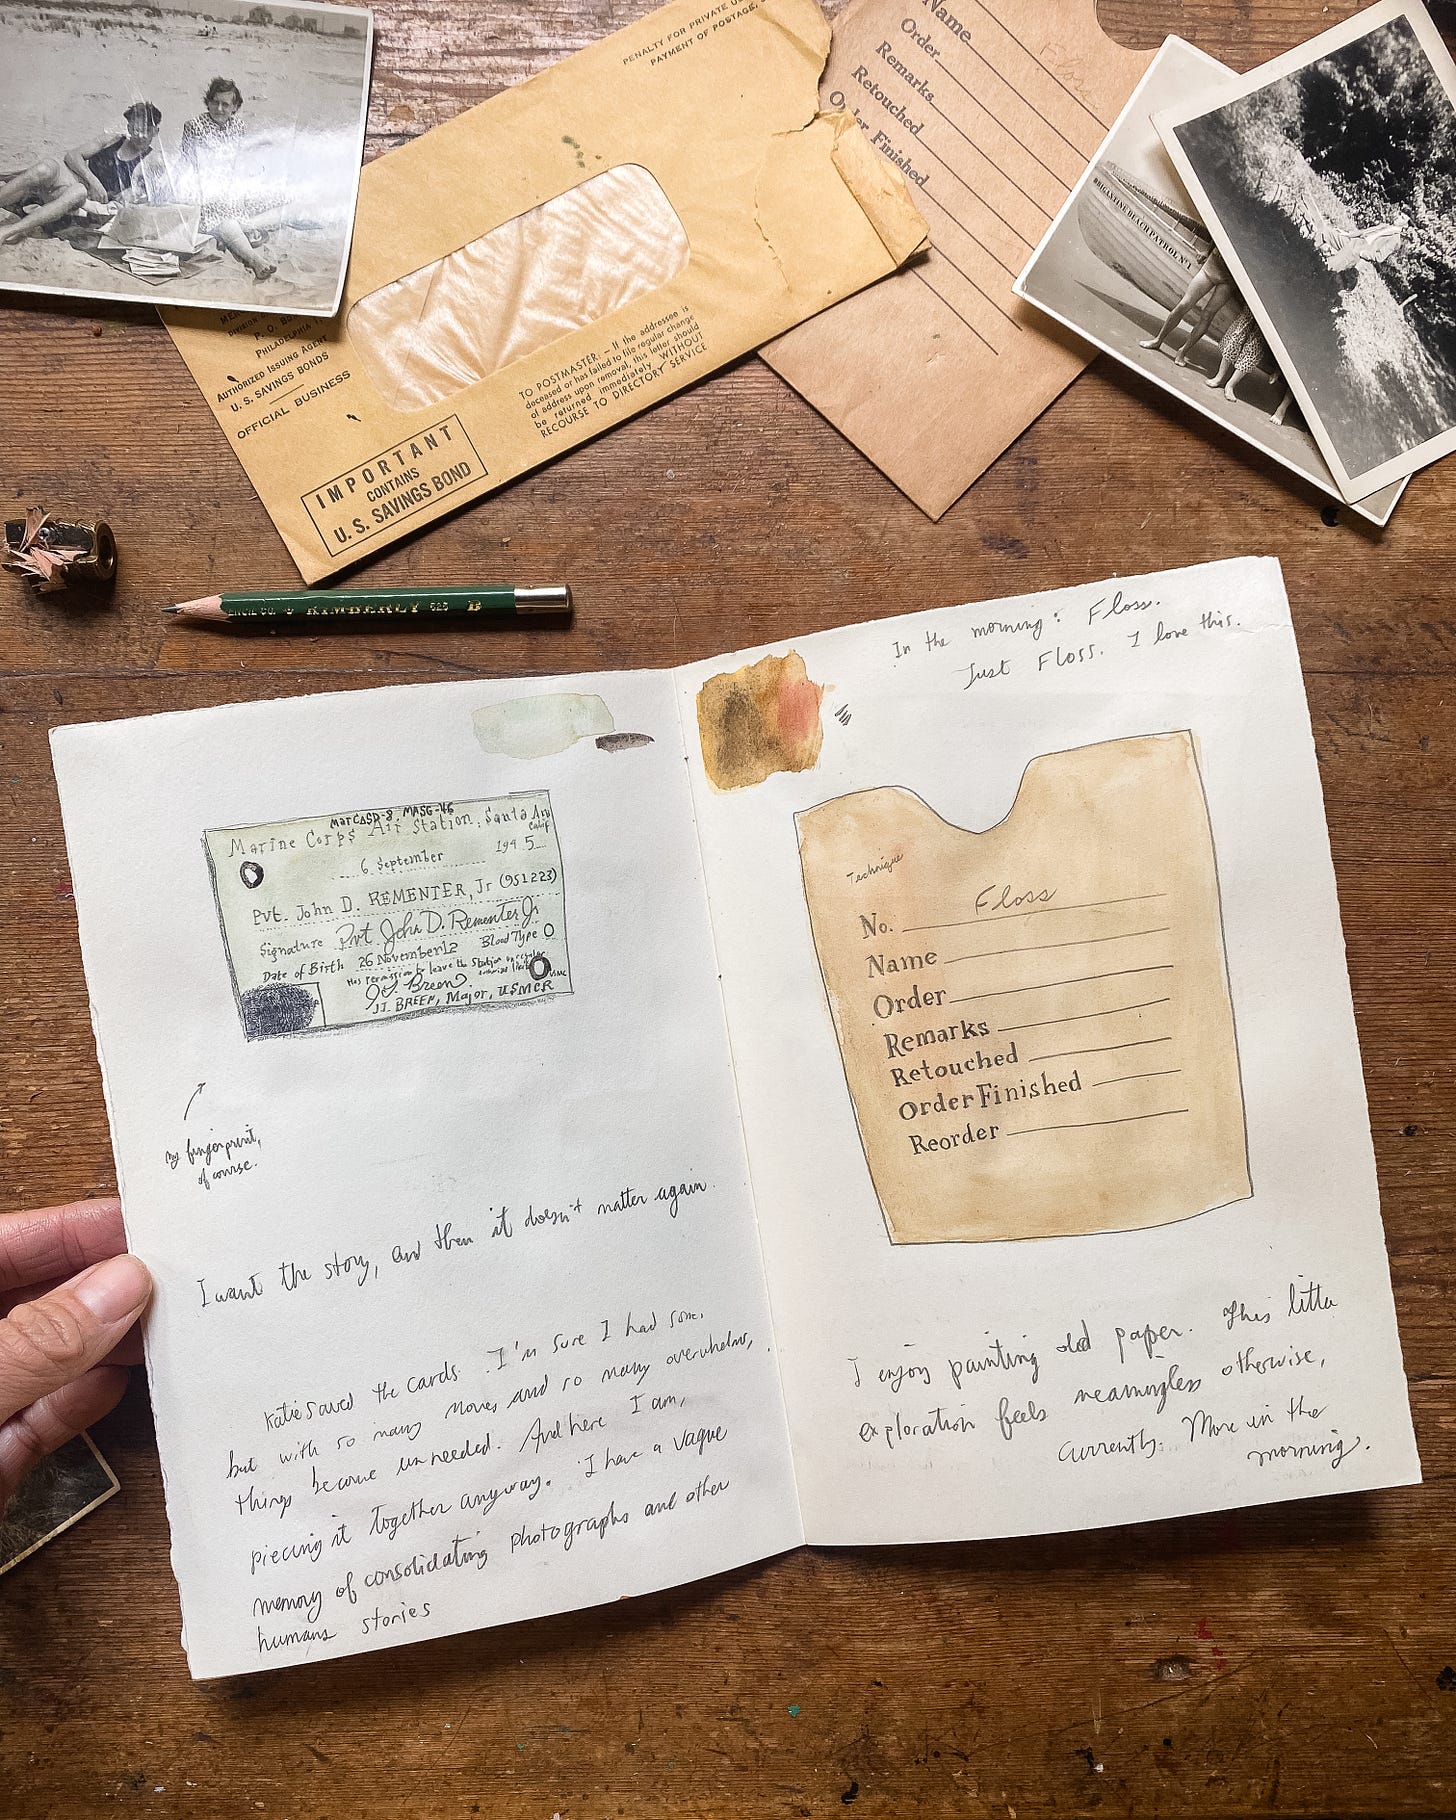 PENALTY FOR PRIVATE
PAYMENT OF POSTAGE,
P. O.
PHILADELPHIA
AUTHORIZED ISSUING AGENT
U. S. SAVINGS BONDS
OFFICIAL BUSINESS
TO POSTMASTER: – If the addressee is
deceased or has failed to file regular change
of address upon removal, this letter should
be returned immediately WITHOUT
RECOURSE TO DIRECTORY SERVICE
IMPORTANT
CONTAINS
U. S. SAVINGS BOND
Name
Order
Remarks
Retouched
Order Finished
BRIGANTINE BEACH PATROL No 1
KIMBERLY 525 B
MarCASD-8, MASG-46
Marine Corps Air Station, Santa Ana
Calif
6 September 1945
Pvt. John D. REMENTER, Jr (951223)
Signature Pvt John D. Rementer Jr
Date of Birth 26 November 12 Blood Type O
Has permission to leave the Station on regular
J I Breen
J I. BREEN, Major, USMCR
my fingerprint,
of course.
I want the story, and then it doesn't matter again.
Katie saved the cards. I'm sure I had some,
but with so many moves and so many overwhelms,
things become unneeded. And here I am,
piecing it together anyway. I have a vague
memory of consolidating photographs and other
humans stories
In the morning: Floss.
Just Floss. I love this.
Technique
No. Floss
Name
Order
Remarks
Retouched
Order Finished
Reorder
I enjoy painting old paper. This little
exploration feels meaningless otherwise,
currently. More in the
morning.